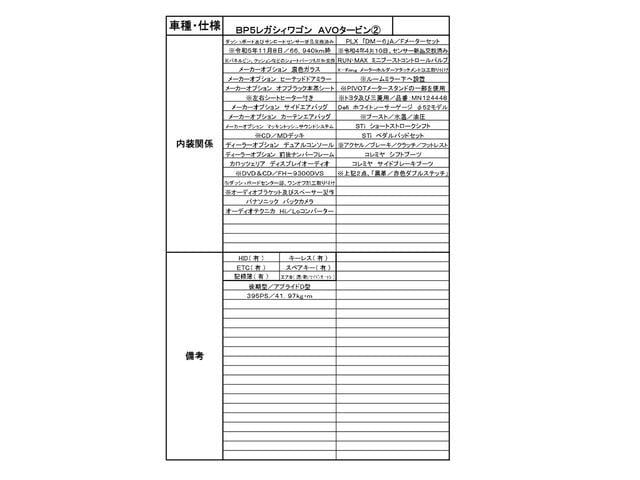 車種・仕様
BP5レガシィワゴン AVOタービン②
内装関係
ダッシュボード及びサンロードセンサー部品交換済み
PLX 「DM-6」A/Fメーターセット
※令和5年11月8日/66,940km時
※令和4年4月10日、センサー新品交換済み
RUN・MAX ミニブーストコントロールバルブ
メーカーオプション 濃色ガラス
メーカーオプション ヒーテッドドアミラー
※ルームミラー下へ設置
メーカーオプション オフブラック本革シート
※PIVOTメータースタンドの一部を使用
※左右シートヒーター付き
※トヨタ及び三菱用/品番:MN124448
メーカーオプション サイドエアバッグ
Defi ホワイトレーサーゲージ φ52モデル
メーカーオプション カーテンエアバッグ
※ブースト/水温/油圧
メーカーオプション マッキントッシュサウンドシステム
STi ショートストロークシフト
※CD/MDデッキ
STi ペダルパッドセット
ディーラーオプション デュアルコンソール
※アクセル/ブレーキ/クラッチ/フットレスト
ディーラーオプション 前後ナンバーフレーム
コレミヤ シフトブーツ
カロッツェリア ディスプレイオーディオ
コレミヤ サイドブレーキブーツ
※DVD&CD/FH-9300DVS
※上記2点、「黒革/赤色ダブルステッチ」
※オーディオブラケット及びスペーサー製作
パナソニック バックカメラ
オーディオテクニカ Hi/Loコンバーター
備考
HID(有)
キーレス(有)
ETC(有)
スペアキー(有)
記録簿(有)
後期型/アプライドD型
395PS/41.97kg・m